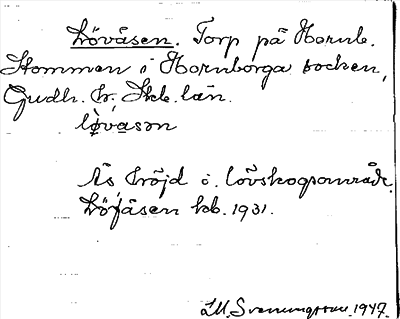 Lövåsen. Torp på Hornb.
Stommen i Hornborga socken,
Gudh. h., Skb. län.
lø̀vasən
Ås höjd i lövskogsområde.
Löfåsen kb. 1931.
S.M. Svenungsson. 1947.